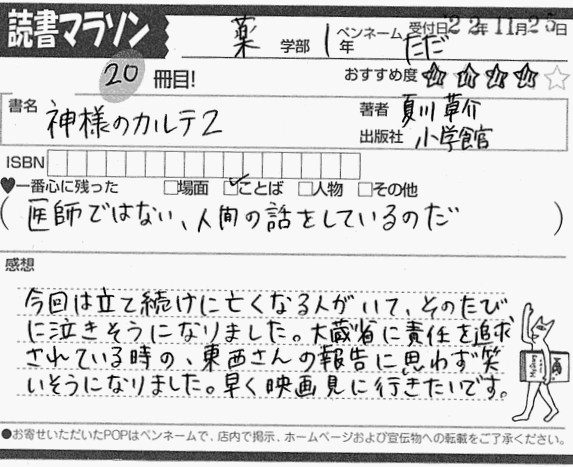 読書マラソン 薬 学部 1年 ペンネーム ただ 受付日22年11月25日
20 冊目! おすすめ度 ★★★★☆
書名 神様のカルテ2 著者 夏川草介
出版社 小学館
ISBN
♥一番心に残った □場面 ☑ことば □人物 □その他
(医師ではない、人間の話をしているのだ)
感想
今回は立て続けに亡くなる人がいて、そのたび
に泣きそうになりました。大蔵省に責任を追求
されている時の、東西さんの報告に思わず笑
いそうになりました。早く映画見に行きたいです。
●お寄せいただいたPOPはペンネームで、店内で掲示、ホームページおよび宣伝物への転載をご了承ください。